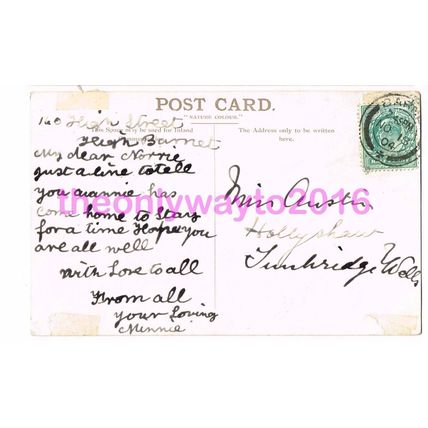 POST CARD.
"NATURE COLOUR."
This Space may be used for Inland
The Address only to be written
here.
160 High Street
High Barnet
My dear Norrie
Just a line to tell
you Mannie has
come home to Stay
for a time Hope you
are all well
With Love to all
From all
your Loving
Minnie
Miss Austin
Hollyshaw
Tunbridge Wells
theonlywayto2016